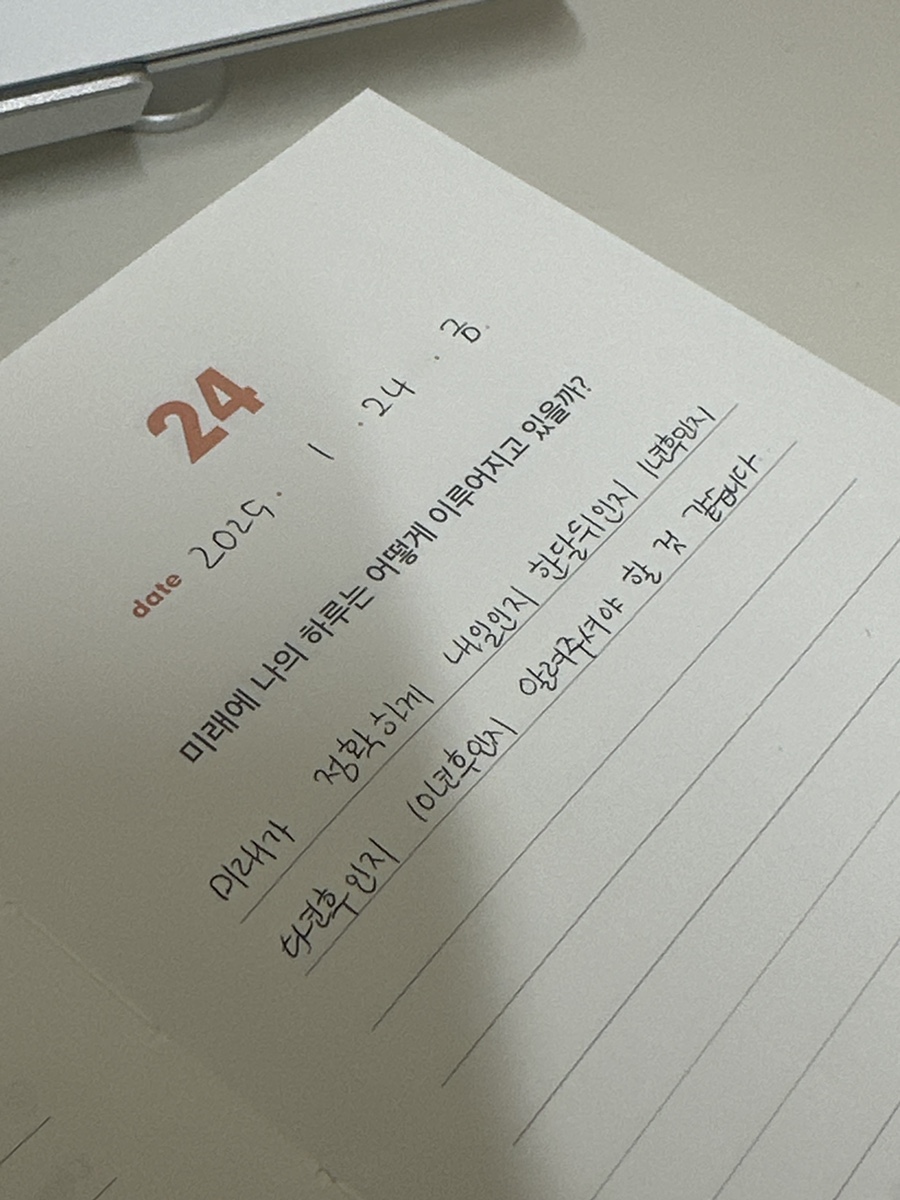 24
date 2025. 1 .24 . 금.
미래에 나의 하루는 어떻게 이루어지고 있을까?
미래가 정확하게 내일인지 한달뒤인지 1년후인지
5년후인지 10년후인지 알려주셔야 할 것 같습니다